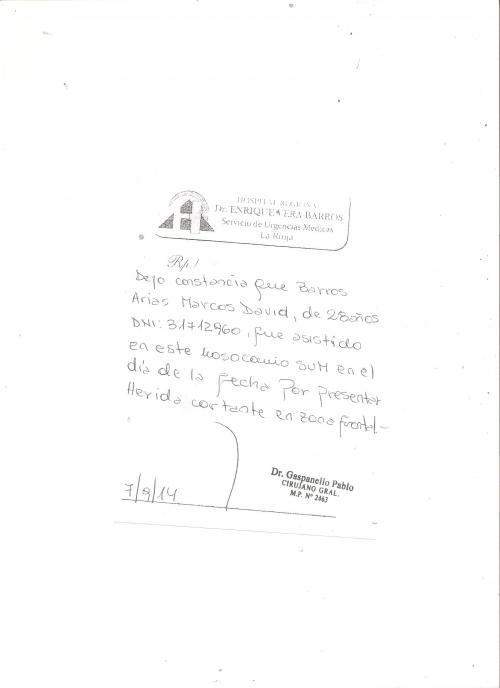 HOSPITAL REGIONAL
Dr. ENRIQUE VERA BARROS
Servicio de Urgencias Medicas
La Rioja
Rp./
Dejo constancia que Barros
Arias Marcos David, de 28 años
DNI: 31712960, fue asistido
en este nosocomio SUM en el
día de la fecha por presentar
Herida cortante en zona frontal-
7/9/14
Dr. Gaspanello Pablo
CIRUJANO GRAL.
M.P. Nº 2463